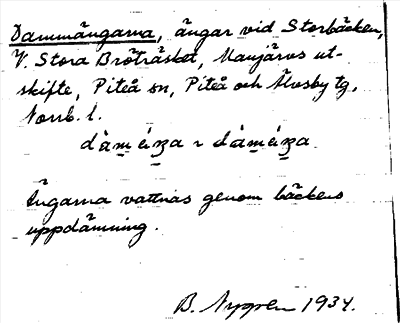 Dammängarna, ängar vid Storbäcken,
V. Stora Bröträsket, Manjärvs ut-
skifte, Piteå sn, Piteå och Älvsby tg,
Norrb. l.
Ängarna vattnas genom bäckens
uppdämning.
B. Nygren 1934.